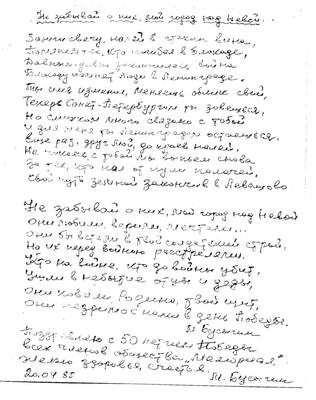 Не забывай о них, мой город над Невой...
Зажги свечу, налей в стакан вина,
Помяни тех, кто погиб в блокаде,
Давным-давно закончилась война
Блокаду помнят люди в Ленинграде.
Ты имя изменил, меняешь облик свой,
Теперь Санкт-Петербургом ты зовешься,
Но слишком много связано с тобой
И для меня ты Ленинградом остаешься.
Еще раз, друг мой, до краев налей,
Не чокаясь с тобой мы выпьем снова
За тех, кто пал от пули палачей,
Свой путь земной закончив в Левашово
Не забывай о них, мой город над Невой
Они любили, верили, мечтали...
Они бы встали в твой солдатский строй,
Но их перед войною расстреляли.
Кто на войне, кто до войны убит,
Ушли в небытие отцы и деды,
Они ковали, Родина, твой щит,
Они с нами в день Победы.
М. Бусыгин
Поздравляю с 50 летием Победы
всех членов общества „Мемориал"
желаю здоровья, счастья.
20.04 95 М. Бусыгин